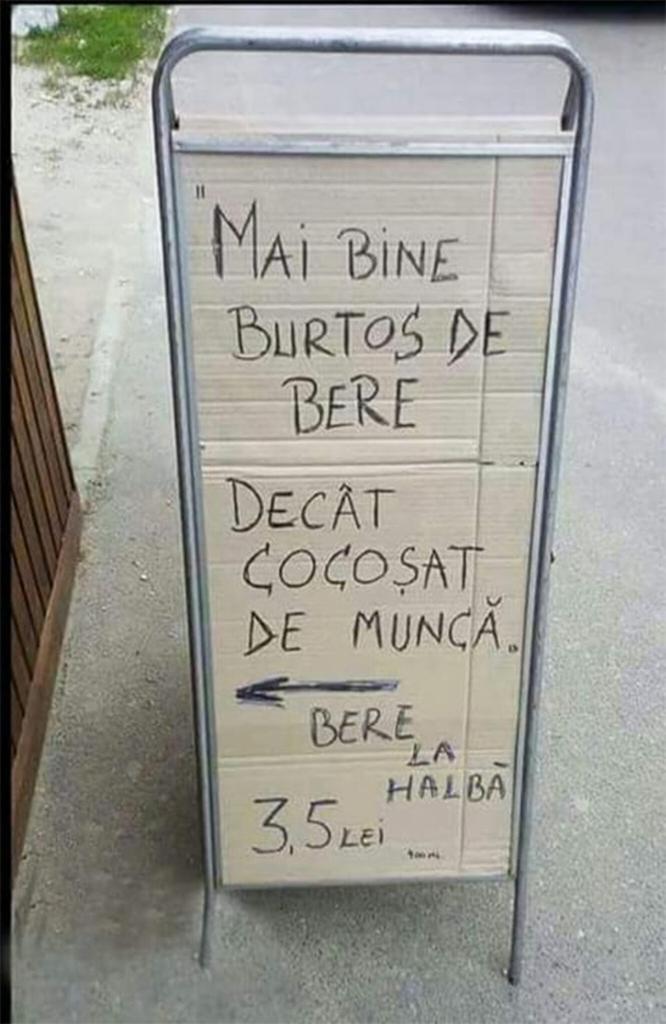 "MAI BINE
BURTOS DE
BERE
DECÂT
COCOȘAT
DE MUNCĂ."
BERE
LA
HALBĂ
3,5 LEI
400 ML